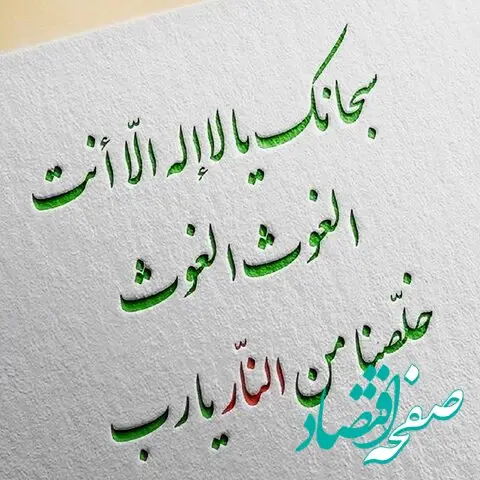 سبحانک یا لا إله الّا أنت
الغوث الغوث
خلّصنا من النّار یا رب
صفحه اقتصاد